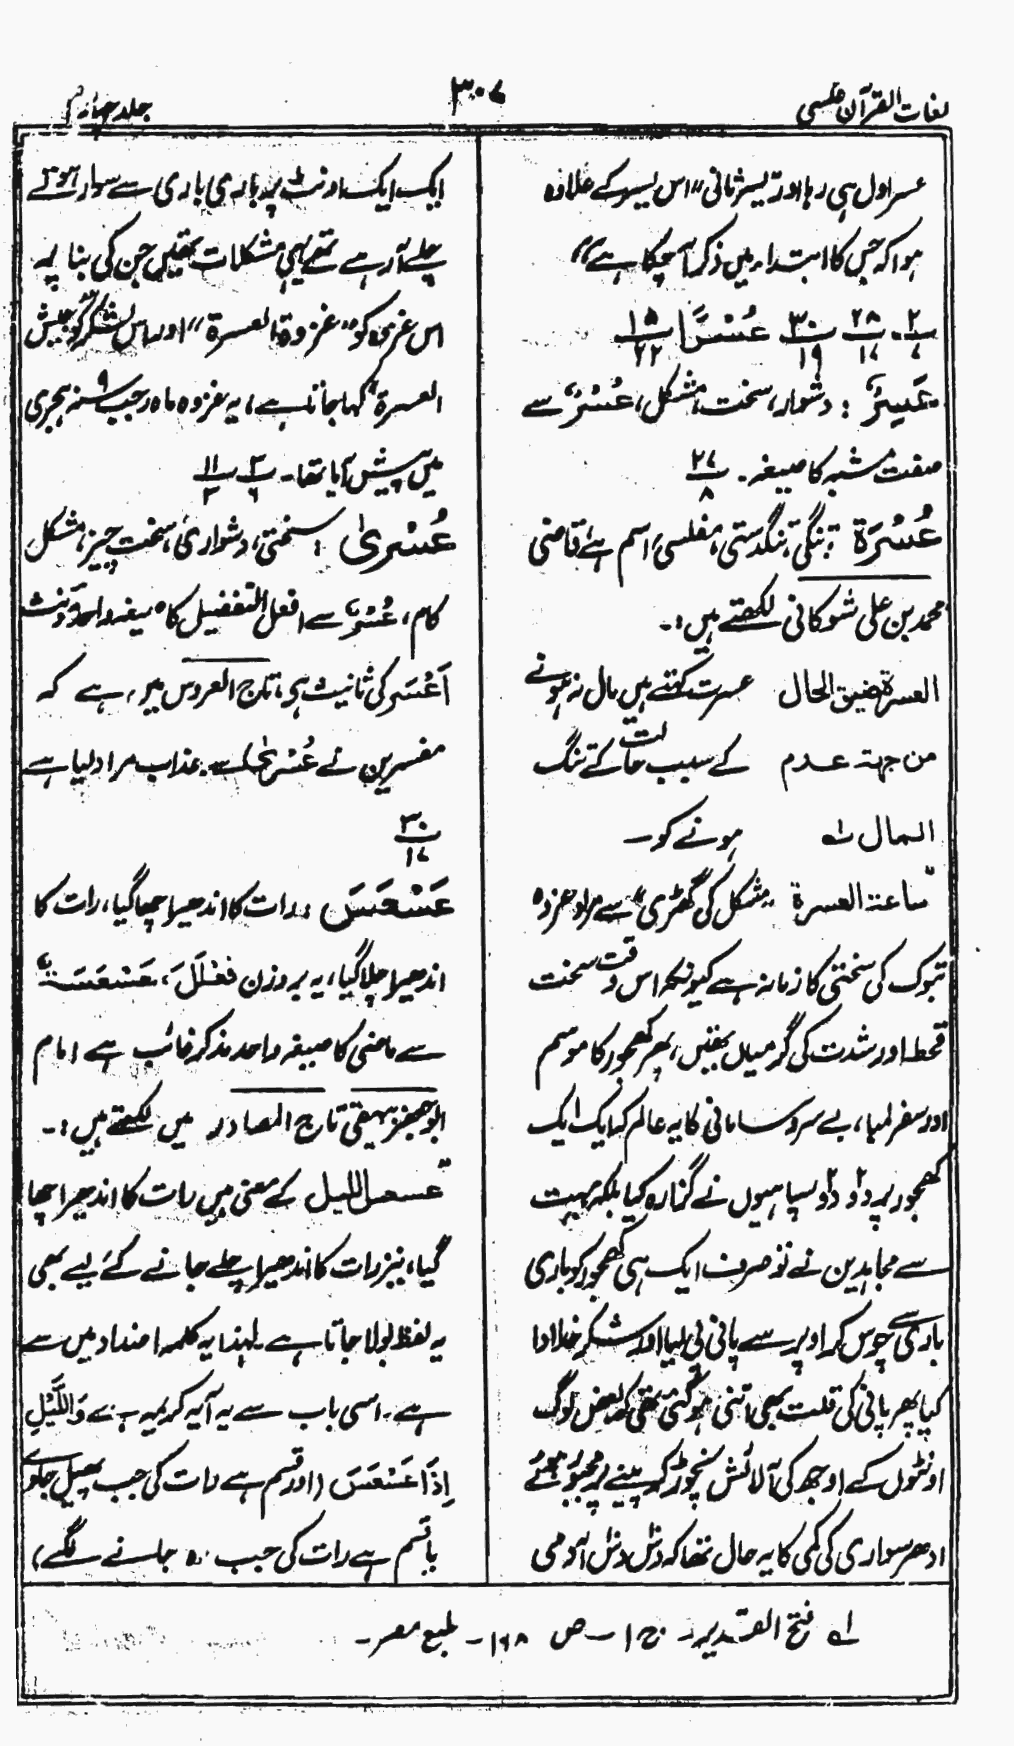 لغات القرآن عکسی
۳۰۷
جلد چہارم
عسر اول ہی رہا اور یسر ثانی" اس یسر کے علاوہ
ہوا کہ جس کا ابتداء میں ذکر آ چکا ہے"
۲/۷ - ۲۸/۱۷ ۳۰/۱۹ عُسْرًا ۱۵/۲۲
عَسِيْرٌ : دشوار، سخت، مشکل، عُسْرٌ سے
صفت مشبہ کا صیغہ - ۲۷/۸
عُسْرَة : تنگی، تنگدستی، مفلسی، اسم ہے قاضی
محمد بن علی شوکانی لکھتے ہیں :-
العسرة ضيق الحال عسرت کہتے ہیں مال نہ ہونے
من جهة عدم کے سبب حالت کے تنگ
المال لہ ہونے کو -
ساعة العسرة "مشکل کی گھڑی" سے مراد غزوہ
تبوک کی سختی کا زمانہ ہے کیونکہ اس وقت سخت
قحط اور شدت کی گرمیاں تھیں، پھر کھجور کا موسم
اور سفر لمبا، بے سرو سامانی کا یہ عالم کہ ایک ایک
کھجور پر دو دو سپاہیوں نے گزارہ کیا بلکہ بہت
سے مجاہدین نے تو صرف ایک ہی کھجور کو باری
باری سے چوس کر اوپر سے پانی پی لیا اور شکر خدا ادا
کیا پھر پانی کی قلت بھی اتنی ہو گئی تھی کہ بعض لوگ
اونٹوں کے اوجھ کی آلائش نچوڑ کر پینے پر مجبور ہوئے
ادھر سواری کی کمی کا یہ حال تھا کہ دس دس آدمی
ایک ایک اونٹ پر باری باری سے سوار ہوتے
چلے آ رہے تھے یہی مشکلات تھیں جن کی بنا پر
اس غزوہ کو "غزوة العسرة" اور اس لشکر کو "جیش
العسرة" کہا جاتا ہے، یہ غزوہ ماہ رجب ۹ سنہ ہجری
میں پیش آیا تھا - ۳/۶ ۱۱/۳
عُسْرىٰ : سختی، دشواری، سخت چیز، مشکل
کام، عُسْرٌ سے افعل التفضیل کا صیغہ واحد مؤنث
اَعْسَر کی تانیث ہی، تاج العروس میں ہے کہ
مفسرین نے عُسْرىٰ سے عذاب مراد لیا ہے
۳۰/۱۷
عَسْعَسَ : رات کا اندھیرا چھا گیا، رات کا
اندھیرا چلا گیا، یہ بروزن فَعْلَلَ، عَسْعَسَةٌ
سے ماضی کا صیغہ واحد مذکر غائب ہے امام
ابو جعفر بیہقی تاج المصادر میں لکھتے ہیں :-
"عسعس اللیل کے معنی ہیں رات کا اندھیرا چھا
گیا، نیز رات کا اندھیرا چلے جانے کے لیے بھی
یہ لفظ بولا جاتا ہے لہذا یہ کلمہ اضداد میں سے
ہے - اسی باب سے یہ آیہ کریمہ ہے وَاللَّيْلِ
اِذَا عَسْعَسَ (اور قسم ہے رات کی جب پھیل جاوے
یا قسم ہے رات کی جب وہ جانے لگے)
لہ فتح القدیر - ج ۱ - ص ۱۶۸ - طبع مصر -